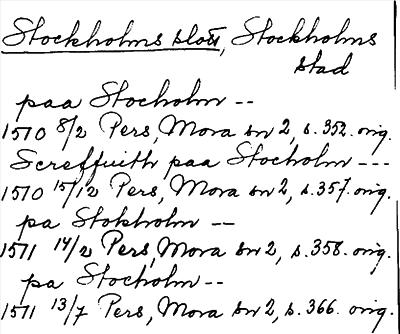 Stockholms slott, Stockholms
stad
paa Stocholm --
1510 8/2 Pers, Mora sn 2, s. 352. orig.
Screffuith paa Stocholm ---
1510 15/12 Pers, Mora sn 2, s. 357. orig.
pa Stokholm --
1511 14/2 Pers, Mora sn 2, s. 358. orig.
pa Stocholm --
1511 13/7 Pers, Mora sn 2, s. 366. orig.